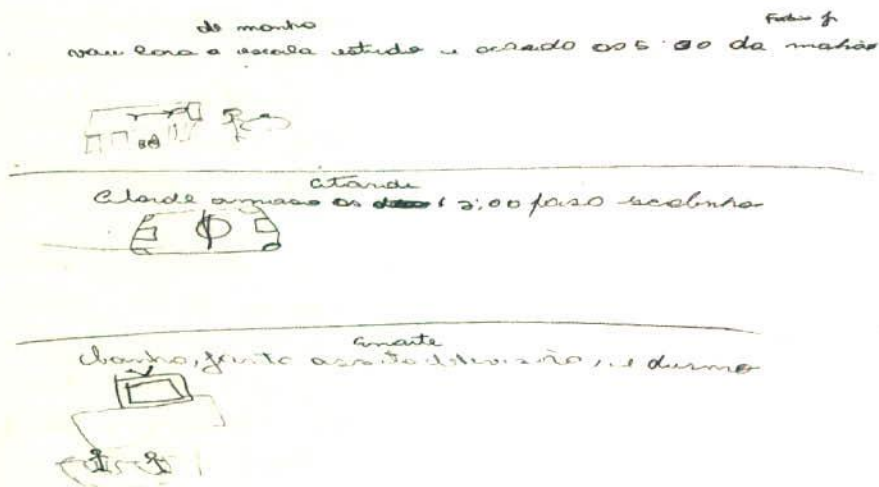 de manhã
vau para a escola estudo e acordo as 5:00 da mahão
atarde
Atarde almoso as 12:00 faso escolinha
anoite
banho, janto assito televisão, e durmo